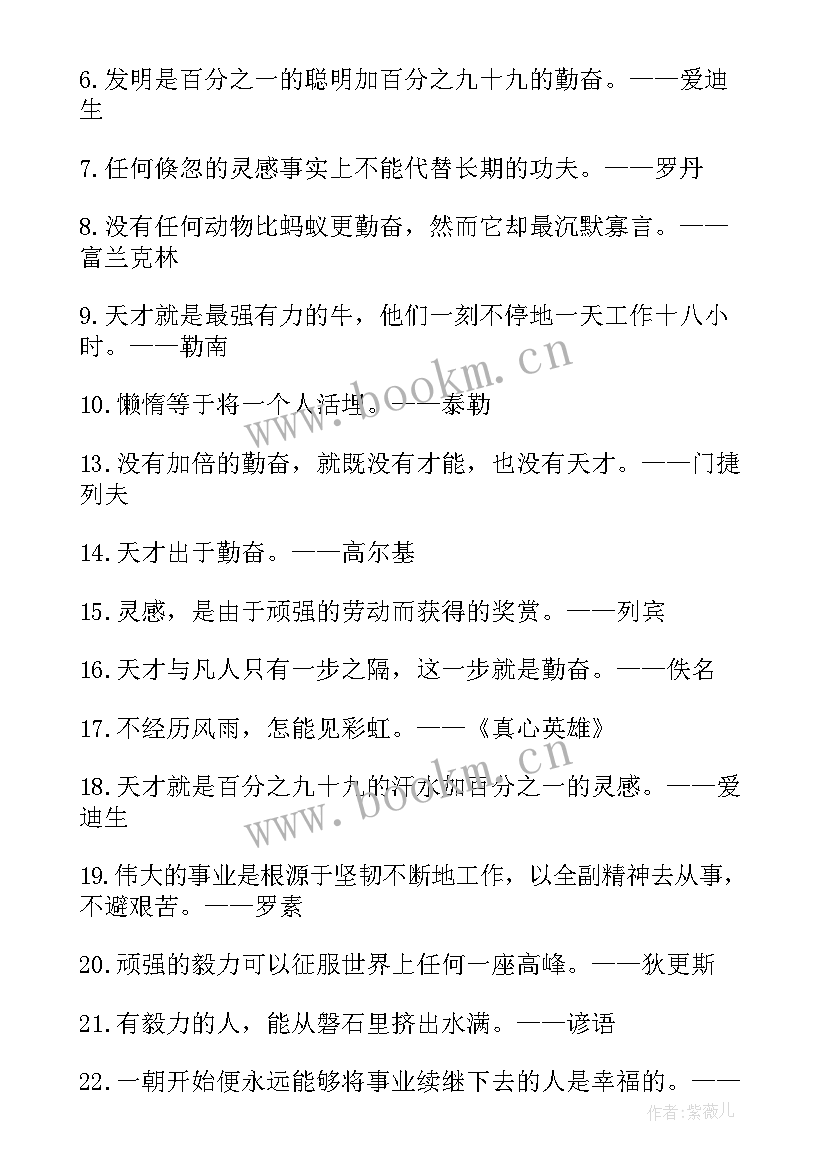 6.发明是百分之一的聪明加百分之九十九的勤奋。——爱迪
生
7.任何倏忽的灵感事实上不能代替长期的功夫。——罗丹
8.没有任何动物比蚂蚁更勤奋，然而它却最沉默寡言。——
富兰克林
9.天才就是最强有力的牛，他们一刻不停地一天工作十八小
时。——勒南
10.懒惰等于将一个人活埋。——泰勒
13.没有加倍的勤奋，就既没有才能，也没有天才。——门捷
列夫
14.天才出于勤奋。——高尔基
15.灵感，是由于顽强的劳动而获得的奖赏。——列宾
16.天才与凡人只有一步之隔，这一步就是勤奋。——佚名
17.不经历风雨，怎能见彩虹。——《真心英雄》
18.天才就是百分之九十九的汗水加百分之一的灵感。——爱
迪生
19.伟大的事业是根源于坚韧不断地工作，以全副精神去从事，
不避艰苦。——罗素
20.顽强的毅力可以征服世界上任何一座高峰。——狄更斯
21.有毅力的人，能从磐石里挤出水满。——谚语
22.一朝开始便永远能够将事业续继下去的人是幸福的。——
www.bookm.cn
www.bookm.cn
作者:紫薇儿